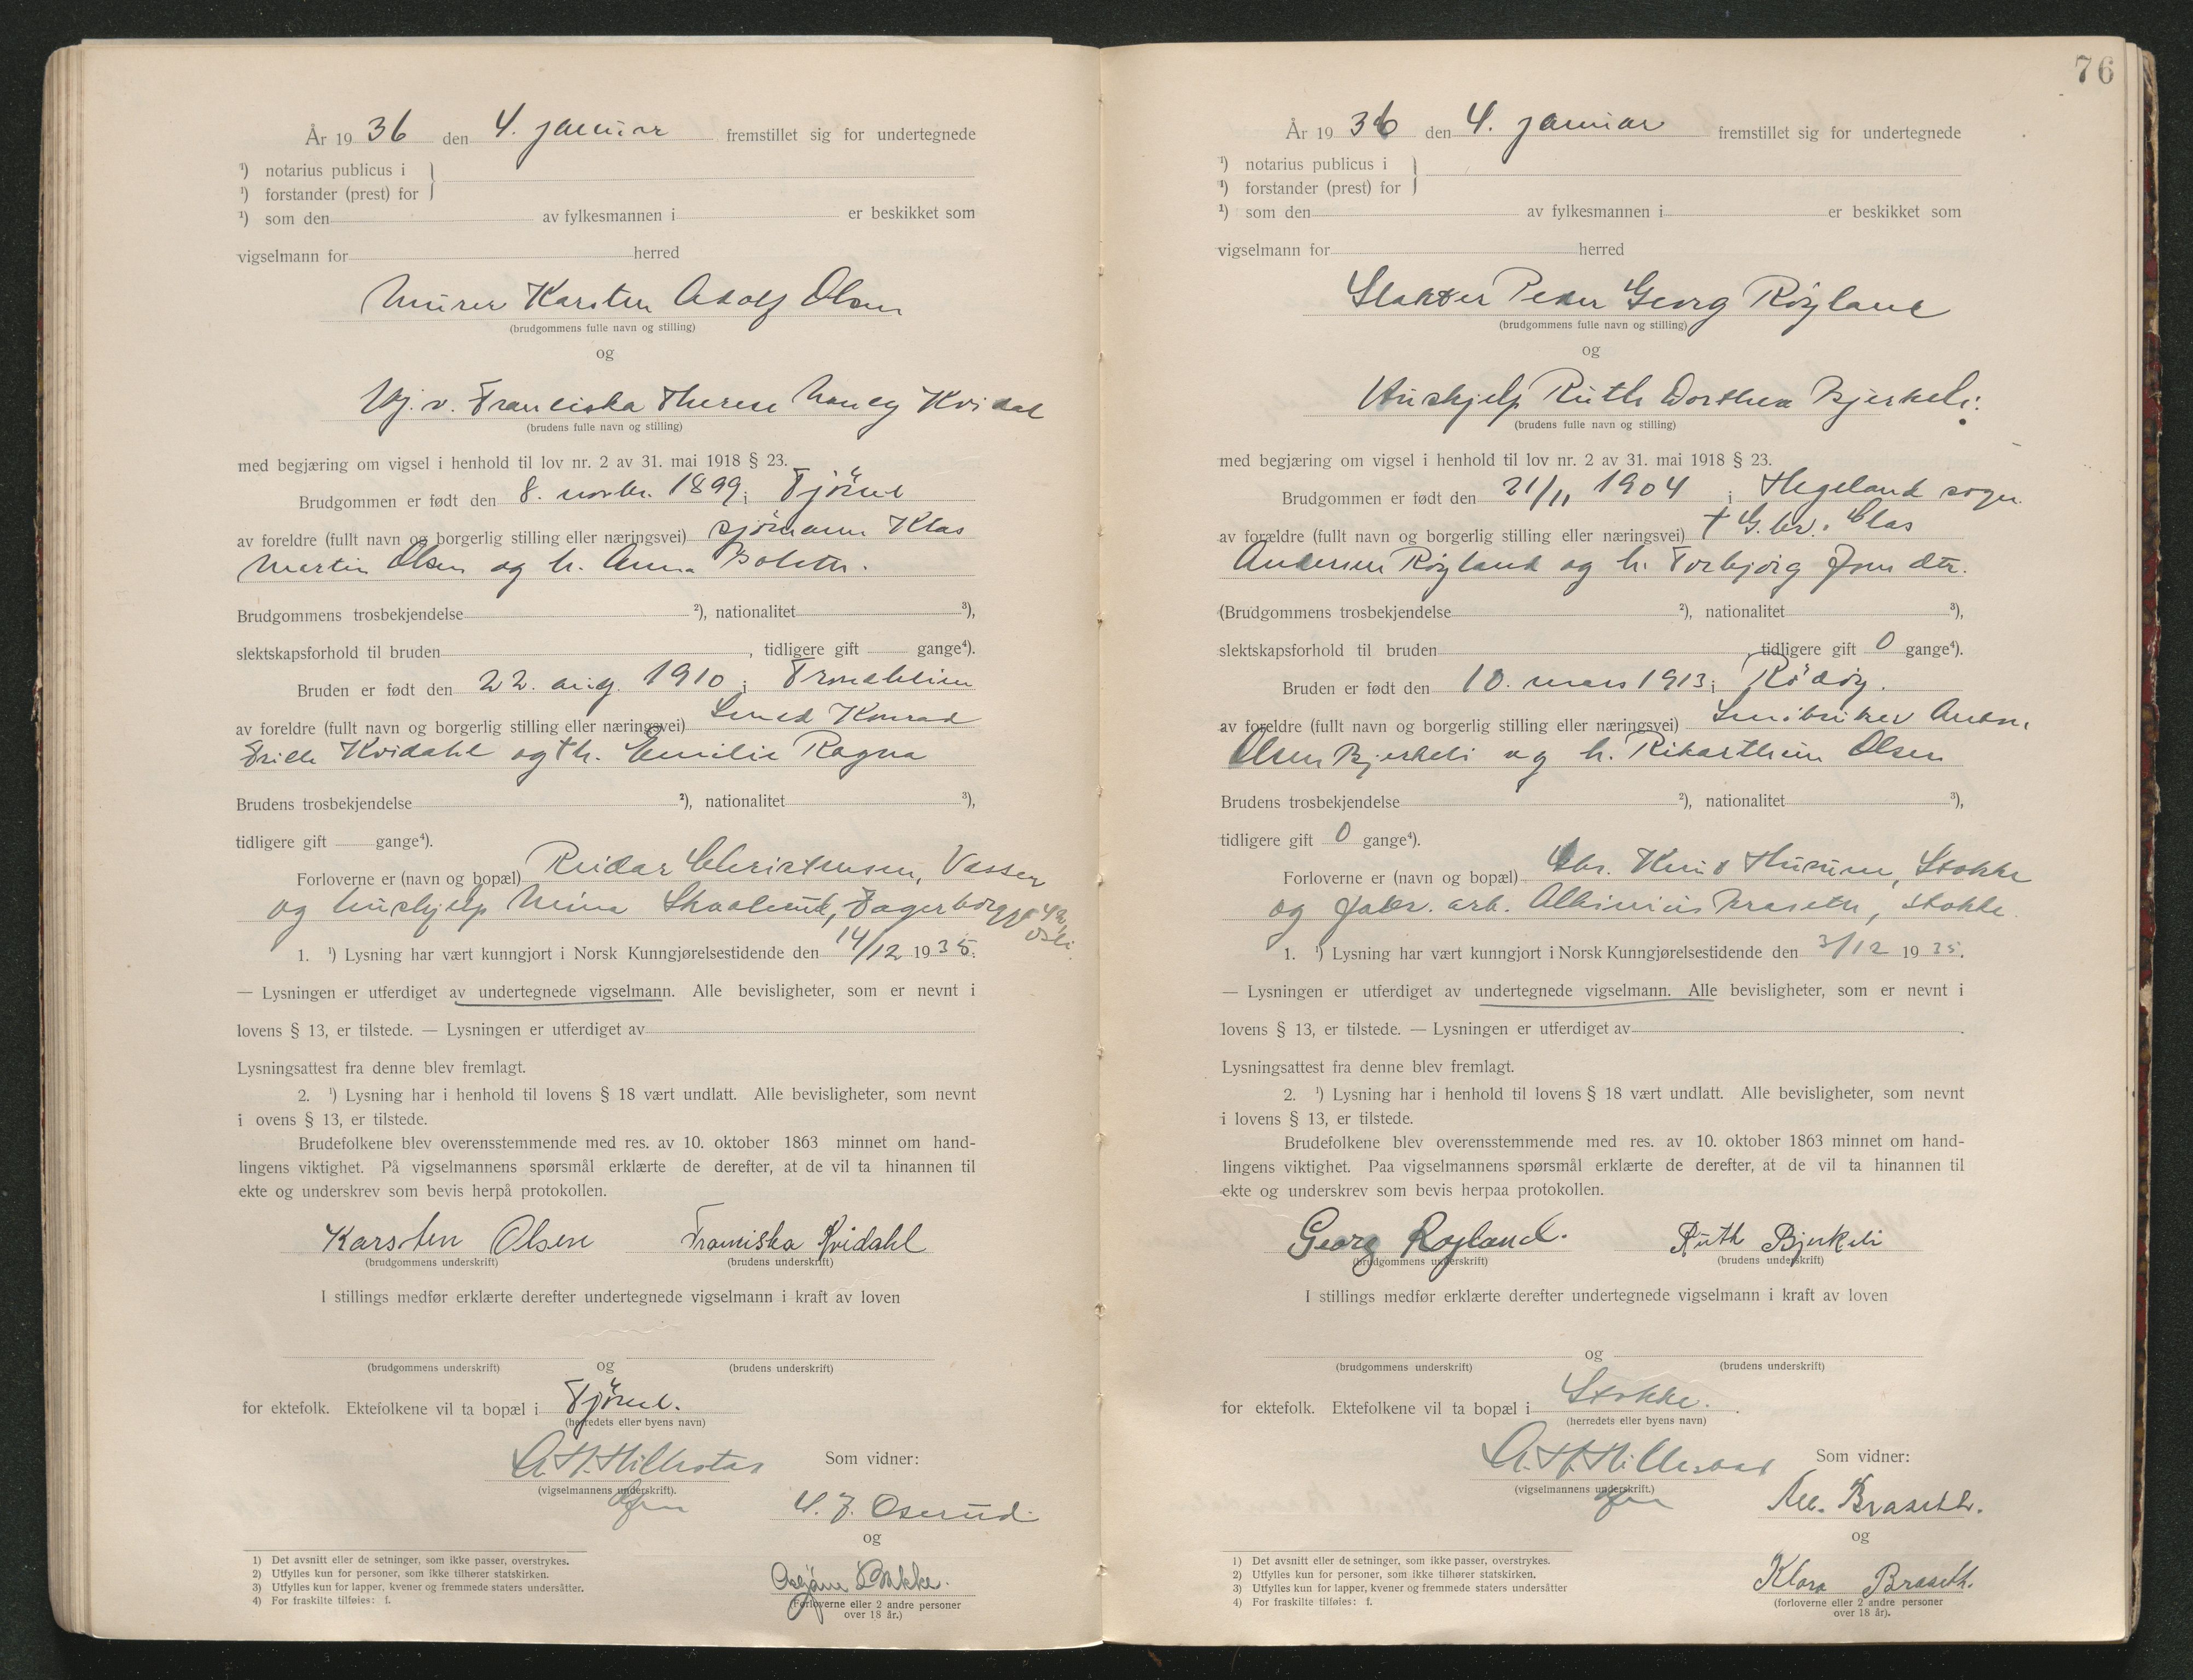 År 1936 den 4. januar fremstillet sig for undertegnede
¹) notarius publicus i
¹) forstander (prest) for
¹) som den av fylkesmannen i er beskikket som
vigselmann for herred
Murer Karsten Adolf Olsen
(brudgommens fulle navn og stilling)
og
Hj. v. Franciska Therese Nancy Kvidal
(brudens fulle navn og stilling)
med begjæring om vigsel i henhold til lov nr. 2 av 31. mai 1918 § 23.
Brudgommen er født den 8. novbr. 1899 i Tjöme
av foreldre (fullt navn og borgerlig stilling eller næringsvei) sjömann Klas
Martin Olsen og h. Anna
Brudgommens trosbekjendelse ²), nationalitet ³),
slektskapsforhold til bruden , tidligere gift gange⁴).
Bruden er født den 22. aug. 1910 i Trondheim
av foreldre (fullt navn og borgerlig stilling eller næringsvei) Smed Konrad
Kvidahl og † h. Emilie Ragna
Brudens trosbekjendelse ²), nationalitet ³),
tidligere gift gange⁴).
Forloverne er (navn og bopæl) Reidar Christensen, Vasser
og hushjelp Mina Skaalerud, Fagerborggt 42, Oslo.
1. ¹) Lysning har vært kunngjort i Norsk Kunngjørelsestidende den 14/12 1935.
— Lysningen er utferdiget av undertegnede vigselmann. Alle bevisligheter, som er nevnt i
lovens § 13, er tilstede. — Lysningen er utferdiget av
Lysningsattest fra denne blev fremlagt.
2. ¹) Lysning har i henhold til lovens § 18 vært undlatt. Alle bevisligheter, som nevnt
i ovens § 13, er tilstede.
Brudefolkene blev overensstemmende med res. av 10. oktober 1863 minnet om hand-
lingens viktighet. På vigselmannens spørsmål erklærte de derefter, at de vil ta hinannen til
ekte og underskrev som bevis herpå protokollen.
Karsten Olsen Franciska Kvidahl
(brudgommens underskrift) (brudens underskrift)
I stillings medfør erklærte derefter undertegnede vigselmann i kraft av loven
og
(brudgommens underskrift) (brudens underskrift)
for ektefolk. Ektefolkene vil ta bopæl i Tjöme.
(herredets eller byens navn)
A. H. Hillestad Som vidner:
(vigselmannens underskrift).
Oserud
og
Asbjörn Bakke.
(Forloverne eller 2 andre personer
over 18 år.)
1) Det avsnitt eller de setninger, som ikke passer, overstrykes.
2) Utfylles kun for personer, som ikke tilhører statskirken.
3) Utfylles kun for lapper, kvener og fremmede staters undersåtter.
4) For fraskilte tilføies: f.
76
År 1936 den 4. januar fremstillet sig for undertegnede
¹) notarius publicus i
¹) forstander (prest) for
¹) som den av fylkesmannen i er beskikket som
vigselmann for herred
Slakter Peder Georg Röyland
(brudgommens fulle navn og stilling)
og
Hushjelp Ruth Dorthea Bjerkeli.
(brudens fulle navn og stilling)
med begjæring om vigsel i henhold til lov nr. 2 av 31. mai 1918 § 23.
Brudgommen er født den 21/11 1904 i Hegeland sogn
av forældre (fullt navn og borgerlig stilling eller næringsvei) † G.br. Clas
Andersen Röyland og h. Torbjörg Jonsdtr.
(Brudgommens trosbekjendelse ²), nationalitet ³),
slektskapsforhold til bruden , tidligere gift 0 gange⁴).
Bruden er født den 10. mars 1913 i Rödöy.
av foreldre (fullt navn og borgerlig stilling eller næringsvei) Småbruker Anton
Olsen Bjerkeli og h. Rikardine Olsen
Brudens trosbekjendelse ²), nationalitet ³),
tidligere gift 0 gange⁴).
Forloverne er (navn og bopæl) Gbr. Knut Husum, Stokke
og fabr. arb. Albinius Braseth, Stokke.
1. ¹) Lysning har vært kunngjort i Norsk Kunngjørelsestidende den 3/12 1935.
— Lysningen er utferdiget av undertegnede vigselmann. Alle bevisligheter, som er nevnt i
lovens § 13, er tilstede. — Lysningen er utferdiget av .
Lysningsattest fra denne blev fremlagt.
2. ¹) Lysning har i henhold til lovens § 18 vært undlatt. Alle bevisligheter, som nevnt
i lovens § 13, er tilstede.
Brudefolkene blev overensstemmende med res. av 10. oktober 1863 minnet om hand-
lingens viktighet. Paa vigselmannens spørsmål erklærte de derefter, at de vil ta hinannen til
ekte og underskrev som bevis herpaa protokollen.
Georg Royland. Ruth Bjerkeli
(brudgommens underskrift) (brudens underskrift)
I stillings medfør erklærte derefter undertegnede vigselmann i kraft av loven
og
(brudgommens underskrift) (brudens underskrift)
for ektefolk. Ektefolkene vil ta bopæl i Stokke.
(herredets eller byens navn)
A. H. Hillestad Som vidner:
(vigselmannens underskrift.)
Braseth.
og
Klara Braseth.
(forloverne eller 2 andre personer
over 18 år).
1) Det avsnitt eller de setninger, som ikke passer, overstrykes.
2) Utfylles kun for personer, som ikke tilhører statskirken.
3) Utfylles kun for lapper, kvener og fremmede staters undersåtter
4) For fraskilte tilføies: f.